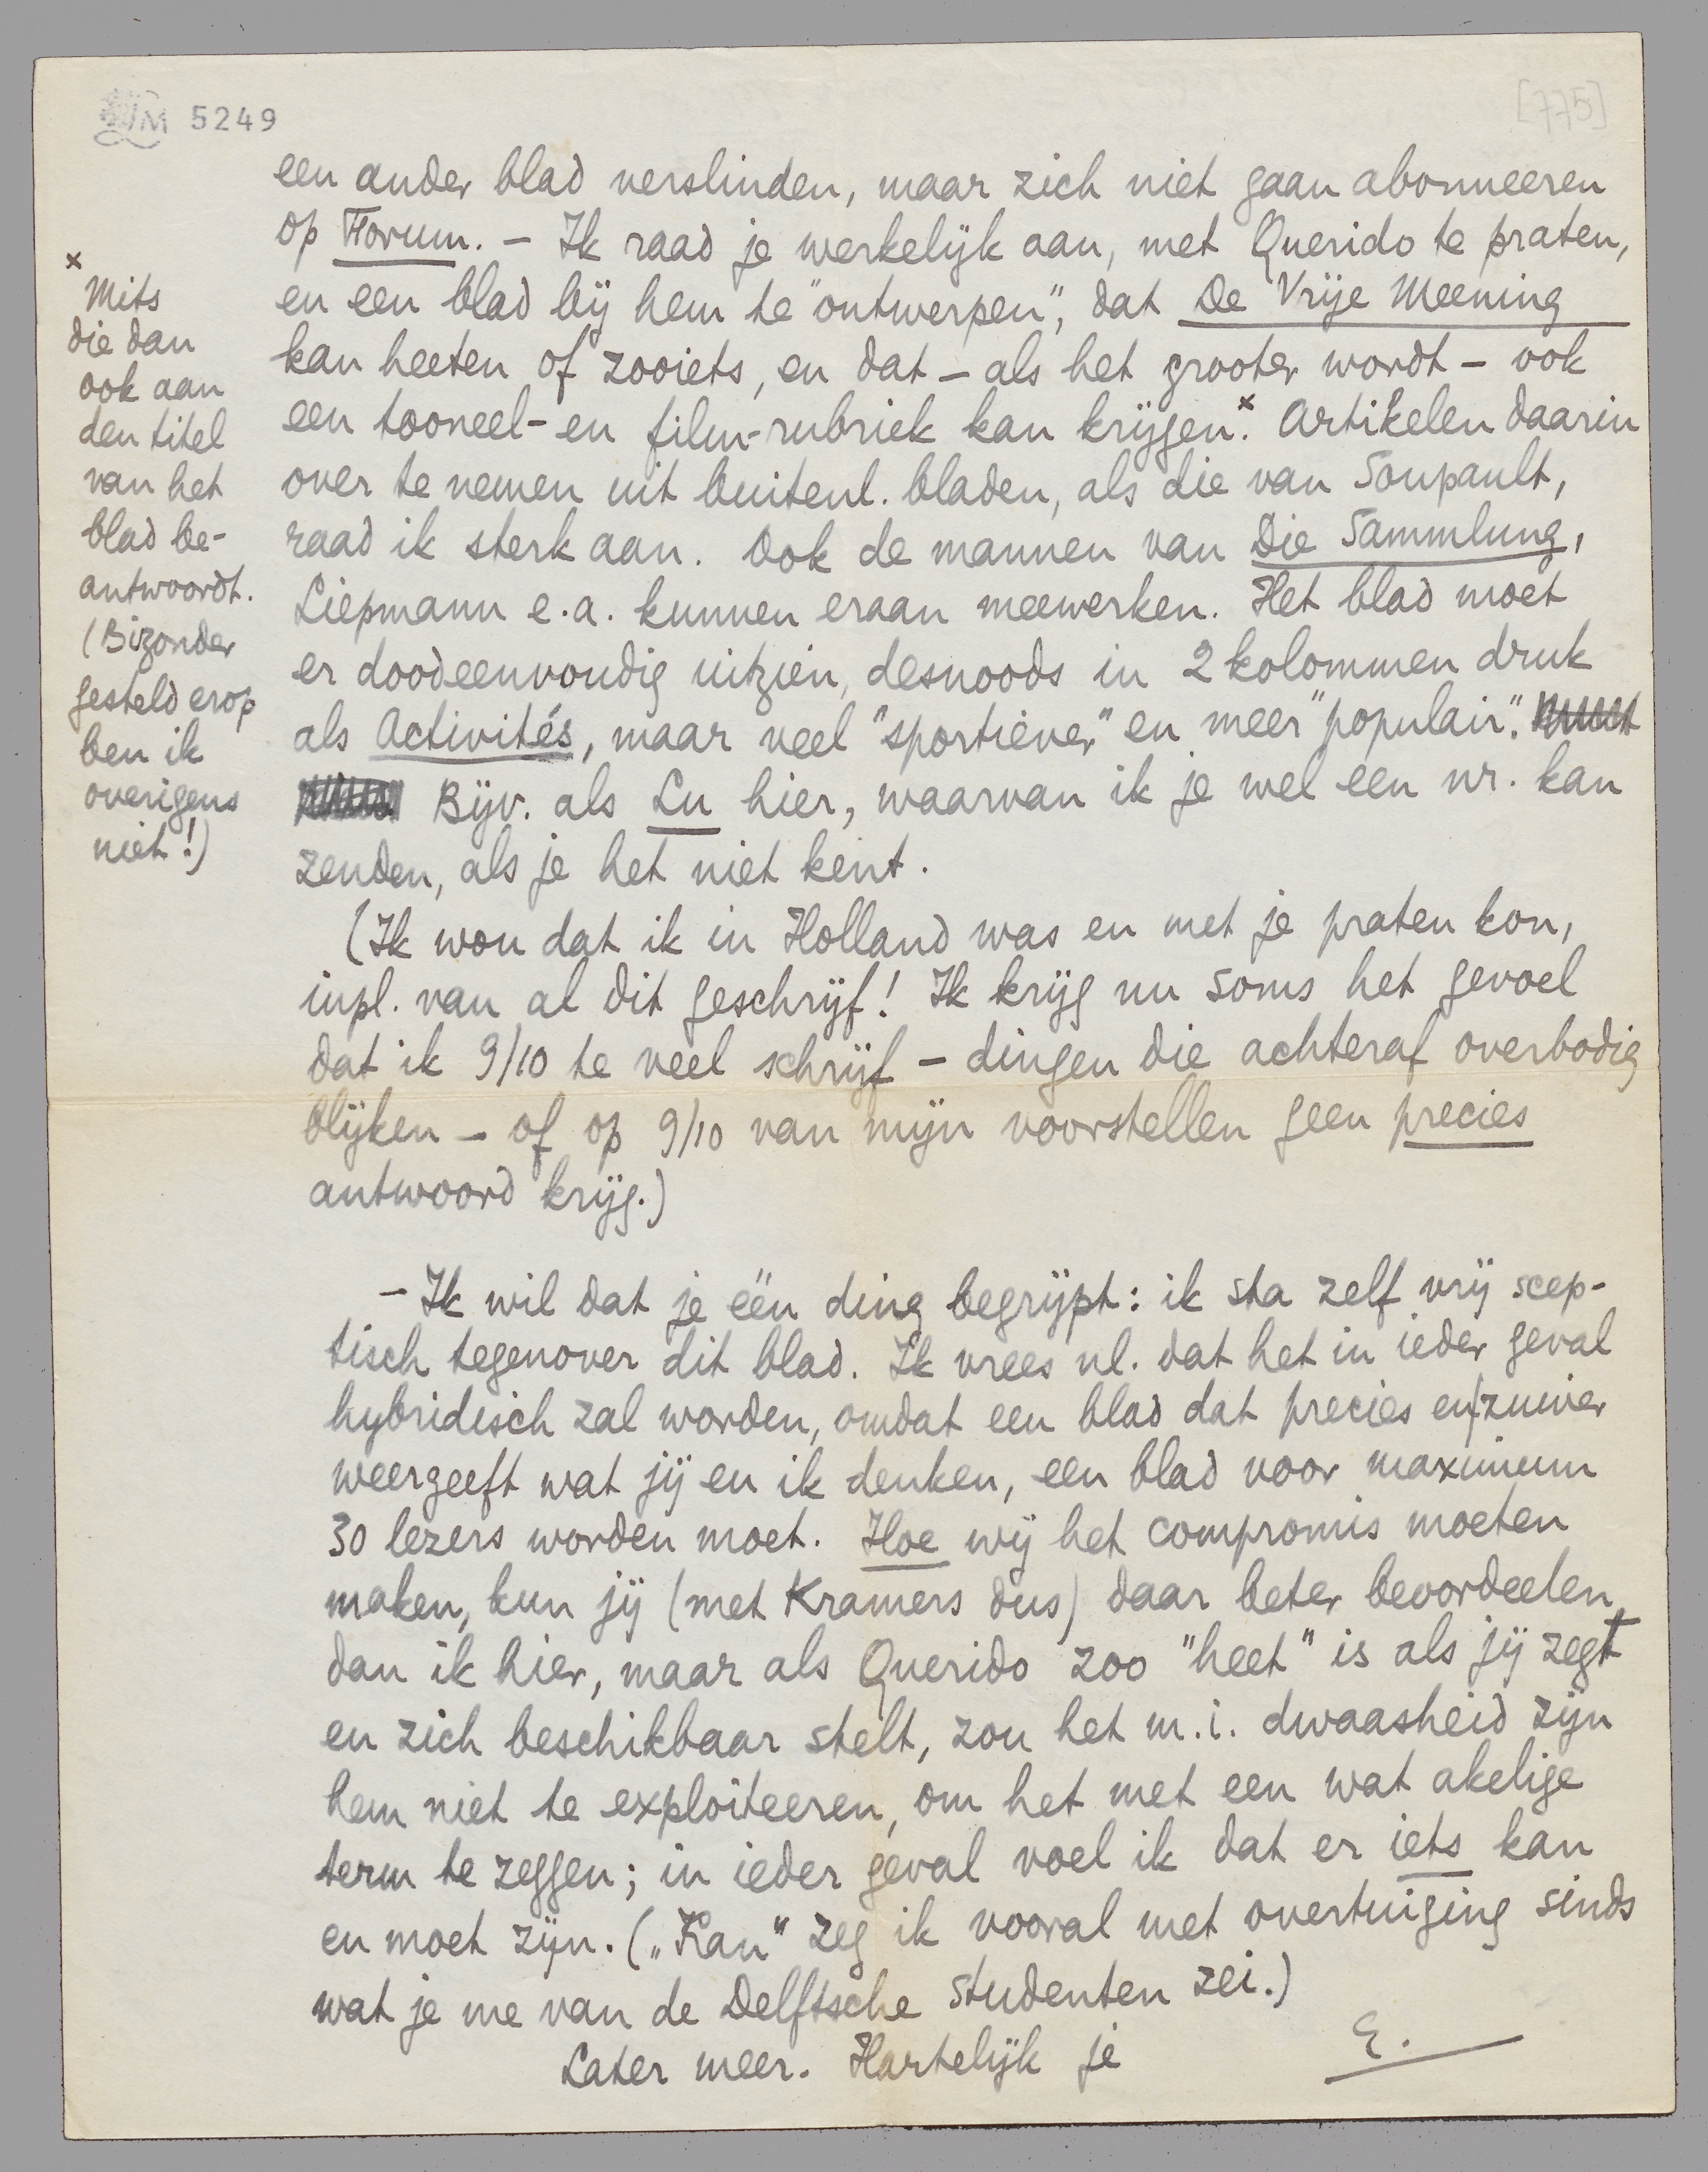 LM 5249
[775]
een ander blad verslinden, maar zich niet gaan abonneeren
op Forum. – Ik raad je werkelijk aan, met Querido te praten,
en een blad bij hem te "ontwerpen", dat De Vrije Meening
kan heeten of zooiets, en dat – als het grooter wordt – ook
een tooneel- en film-rubriek kan krijgen.x Artikelen daarin
over te nemen uit buitenl. bladen, als die van Soupault,
raad ik sterk aan. Ook de mannen van Die Sammlung,
Liepmann e.a. kunnen eraan meewerken. Het blad moet
er doodeenvoudig uitzien, desnoods in 2 kolommen druk
als Activités, maar veel "sportiever" en meer "populair".
Bijv. als Lu hier, waarvan ik je wel een nr. kan
zenden, als je het niet kent.
(Ik wou dat ik in Holland was en met je praten kon,
inpl. van al dit geschrijf! Ik krijg nu soms het gevoel
dat ik 9/10 te veel schrijf – dingen die achteraf overbodig
blijken – of op 9/10 van mijn voorstellen geen precies
antwoord krijg.)
– Ik wil dat je één ding begrijpt: ik sta zelf vrij scep-
tisch tegenover dit blad. Ik vrees nl. dat het in ieder geval
hybridisch zal worden, omdat een blad dat precies en zuiver
weergeeft wat jij en ik denken, een blad voor maximum
30 lezers worden moet. Hoe wij het compromis moeten
maken, kun jij (met Kramers dus) daar beter beoordeelen,
dan ik hier, maar als Querido zoo "heet" is als jij zegt
en zich beschikbaar stelt, zou het m.i. dwaasheid zijn
hem niet te exploiteeren, om het met een wat akelige
term te zeggen; in ieder geval voel ik dat er iets kan
en moet zijn. („Kan" zeg ik vooral met overtuiging sinds
wat je me van de Delftsche studenten zei.)
Later meer. Hartelijk je
E.
x Mits
die dan
ook aan
den titel
van het
blad be-
antwoordt.
(Bizonder
gesteld erop
ben ik
overigens
niet!)